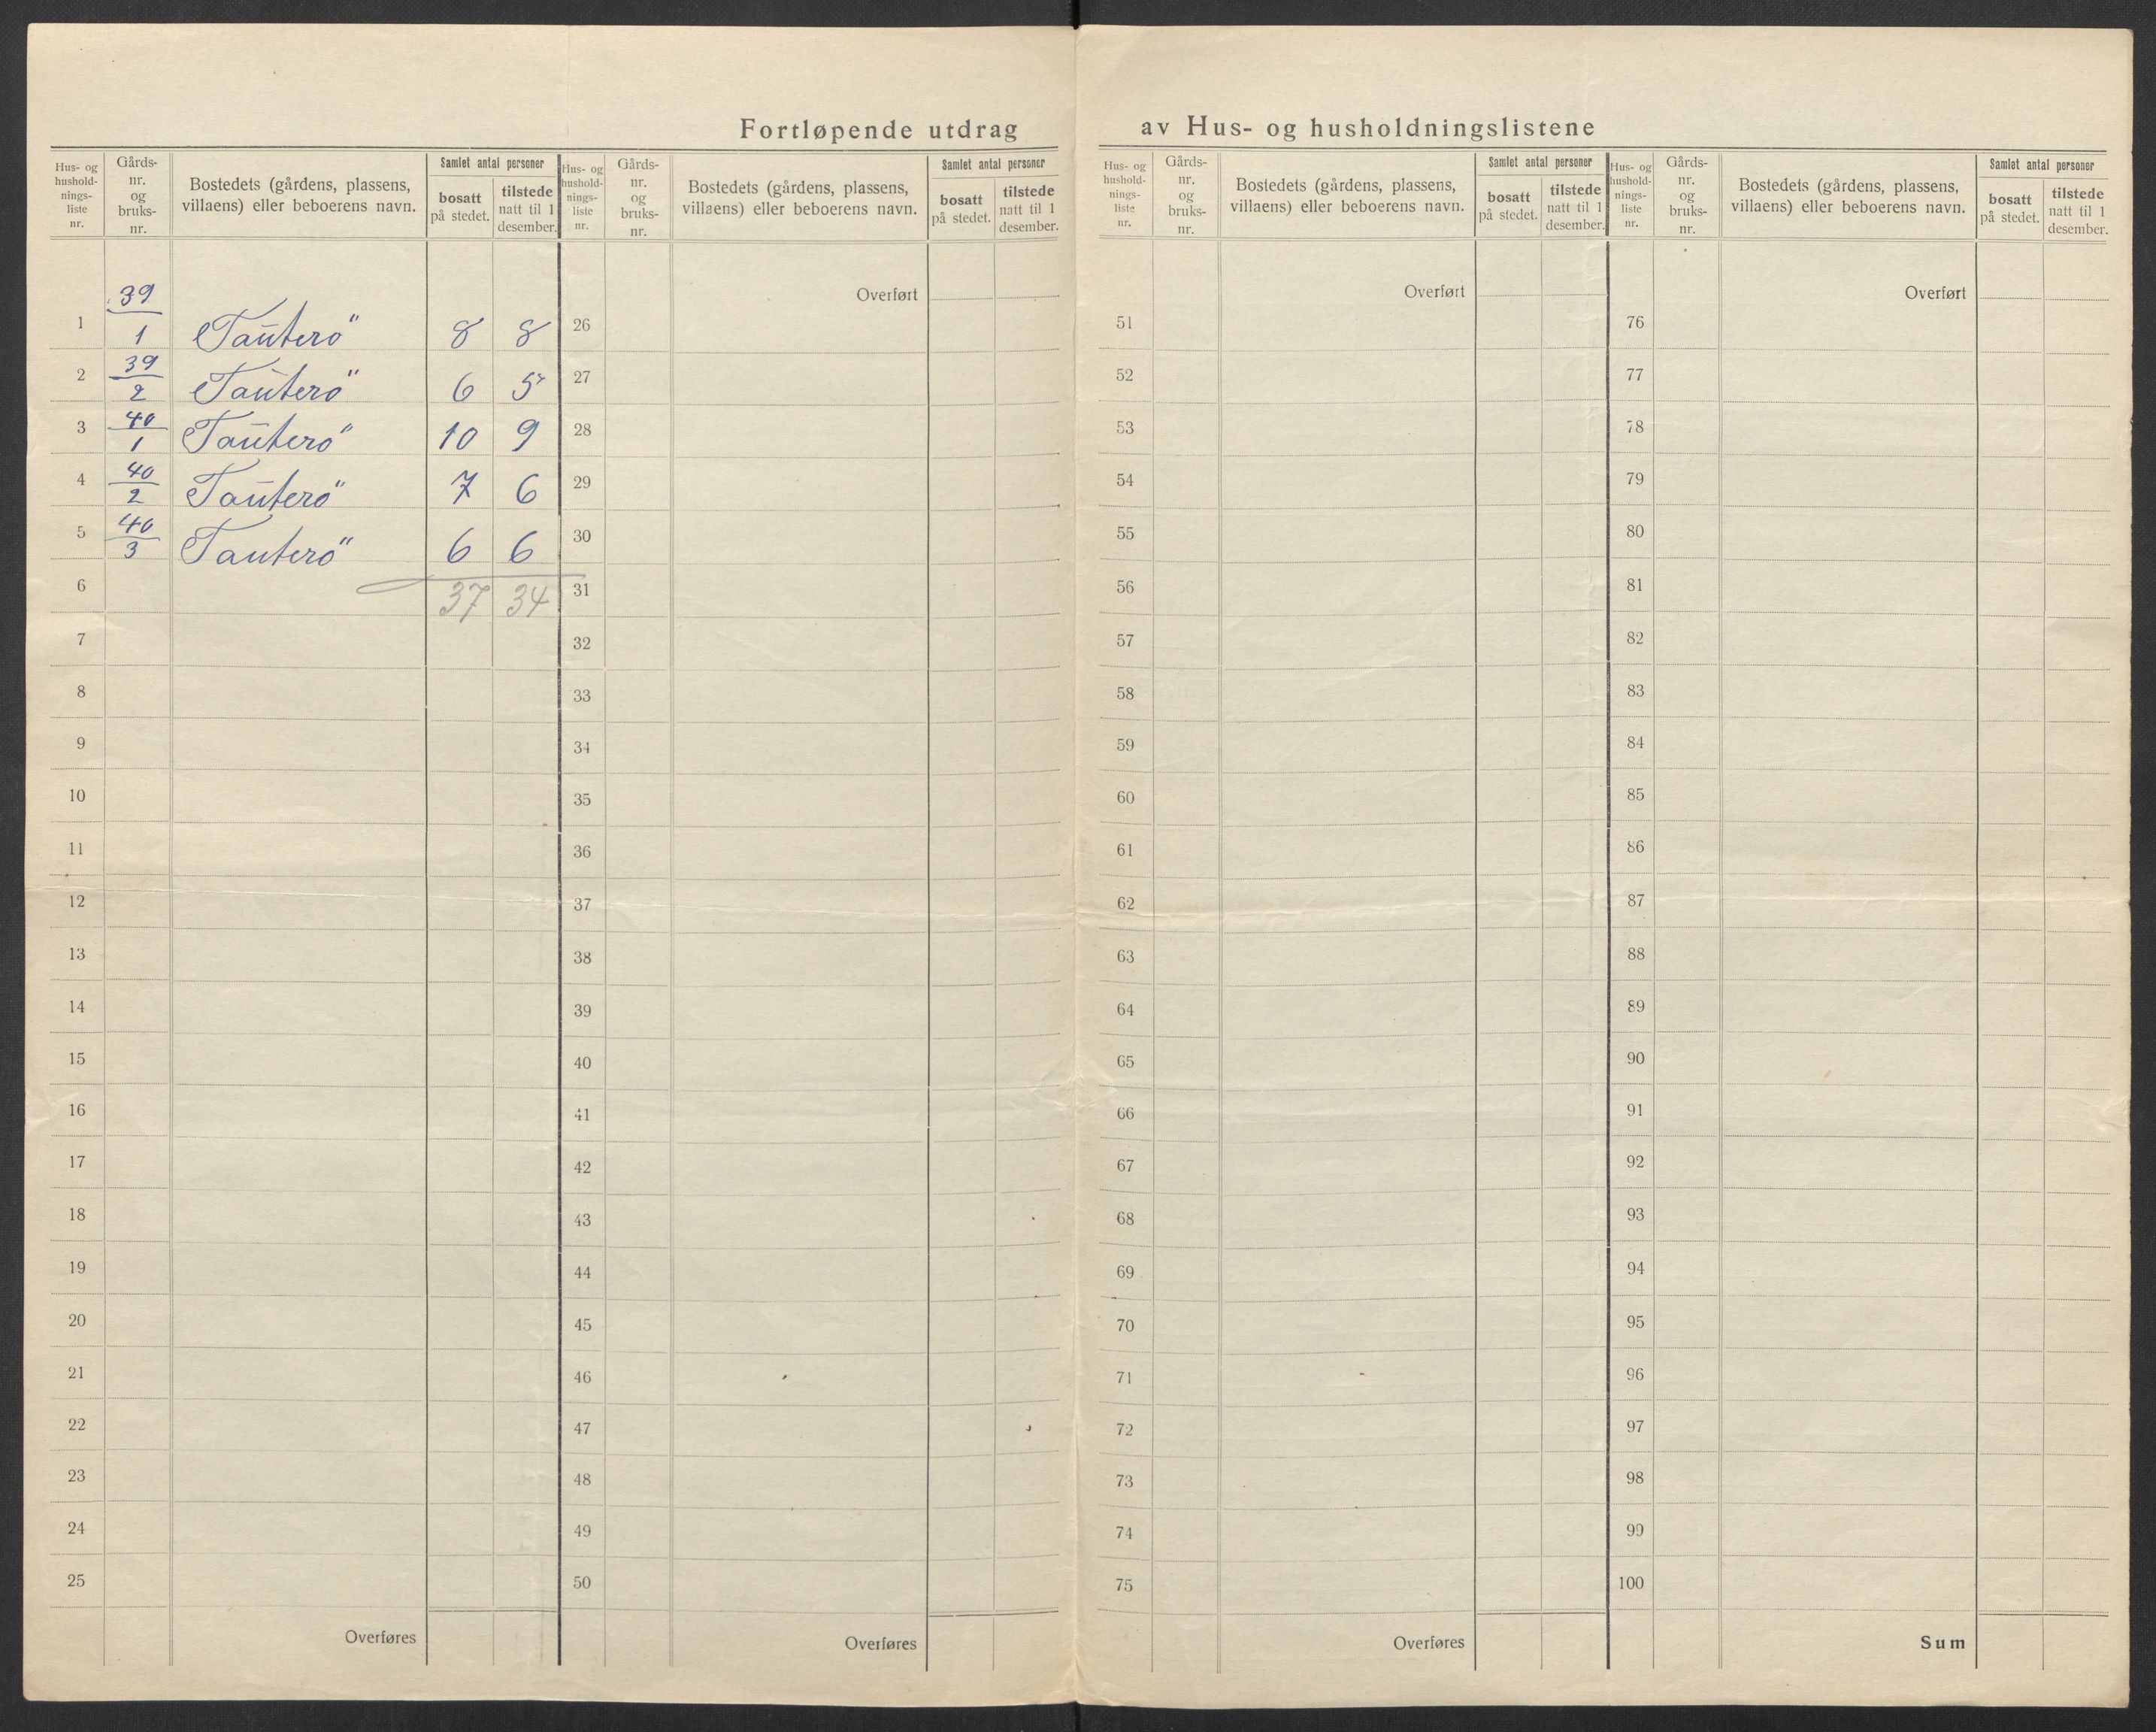 Fortløpende utdrag av Hus- og husholdningslistene
Hus- og
hushold-
nings-
liste
nr.
Gårds-
nr.
og
bruks-
nr.
Bostedets (gårdens, plassens,
villaens) eller beboerens navn.
Samlet antal personer
bosatt
på stedet.
tilstede
natt til 1
desember.
1 39/1 Tauterö 8 8
2 39/2 Tauterö 6 5
3 40/1 Tauterö 10 9
4 40/2 Tauterö 7 6
5 40/3 Tauterö 6 6
6 37 34
7
8
9
10
11
12
13
14
15
16
17
18
19
20
21
22
23
24
25
Overføres
Hus- og
hushold-
nings-
liste
nr.
Gårds-
nr.
og
bruks-
nr.
Bostedets (gårdens, plassens,
villaens) eller beboerens navn.
Samlet antal personer
bosatt
på stedet.
tilstede
natt til 1
desember.
Overført
26
27
28
29
30
31
32
33
34
35
36
37
38
39
40
41
42
43
44
45
46
47
48
49
50
Overføres
Hus- og
hushold-
nings-
liste
nr.
Gårds-
nr.
og
bruks-
nr.
Bostedets (gårdens, plassens,
villaens) eller beboerens navn.
Samlet antal personer
bosatt
på stedet.
tilstede
natt til 1
desember.
Overført
51
52
53
54
55
56
57
58
59
60
61
62
63
64
65
66
67
68
69
70
71
72
73
74
75
Overføres
Hus- og
hushold-
nings-
liste
nr.
Gårds-
nr.
og
bruks-
nr.
Bostedets (gårdens, plassens,
villaens) eller beboerens navn.
Samlet antal personer
bosatt
på stedet.
tilstede
natt til 1
desember.
Overført
76
77
78
79
80
81
82
83
84
85
86
87
88
89
90
91
92
93
94
95
96
97
98
99
100
Sum